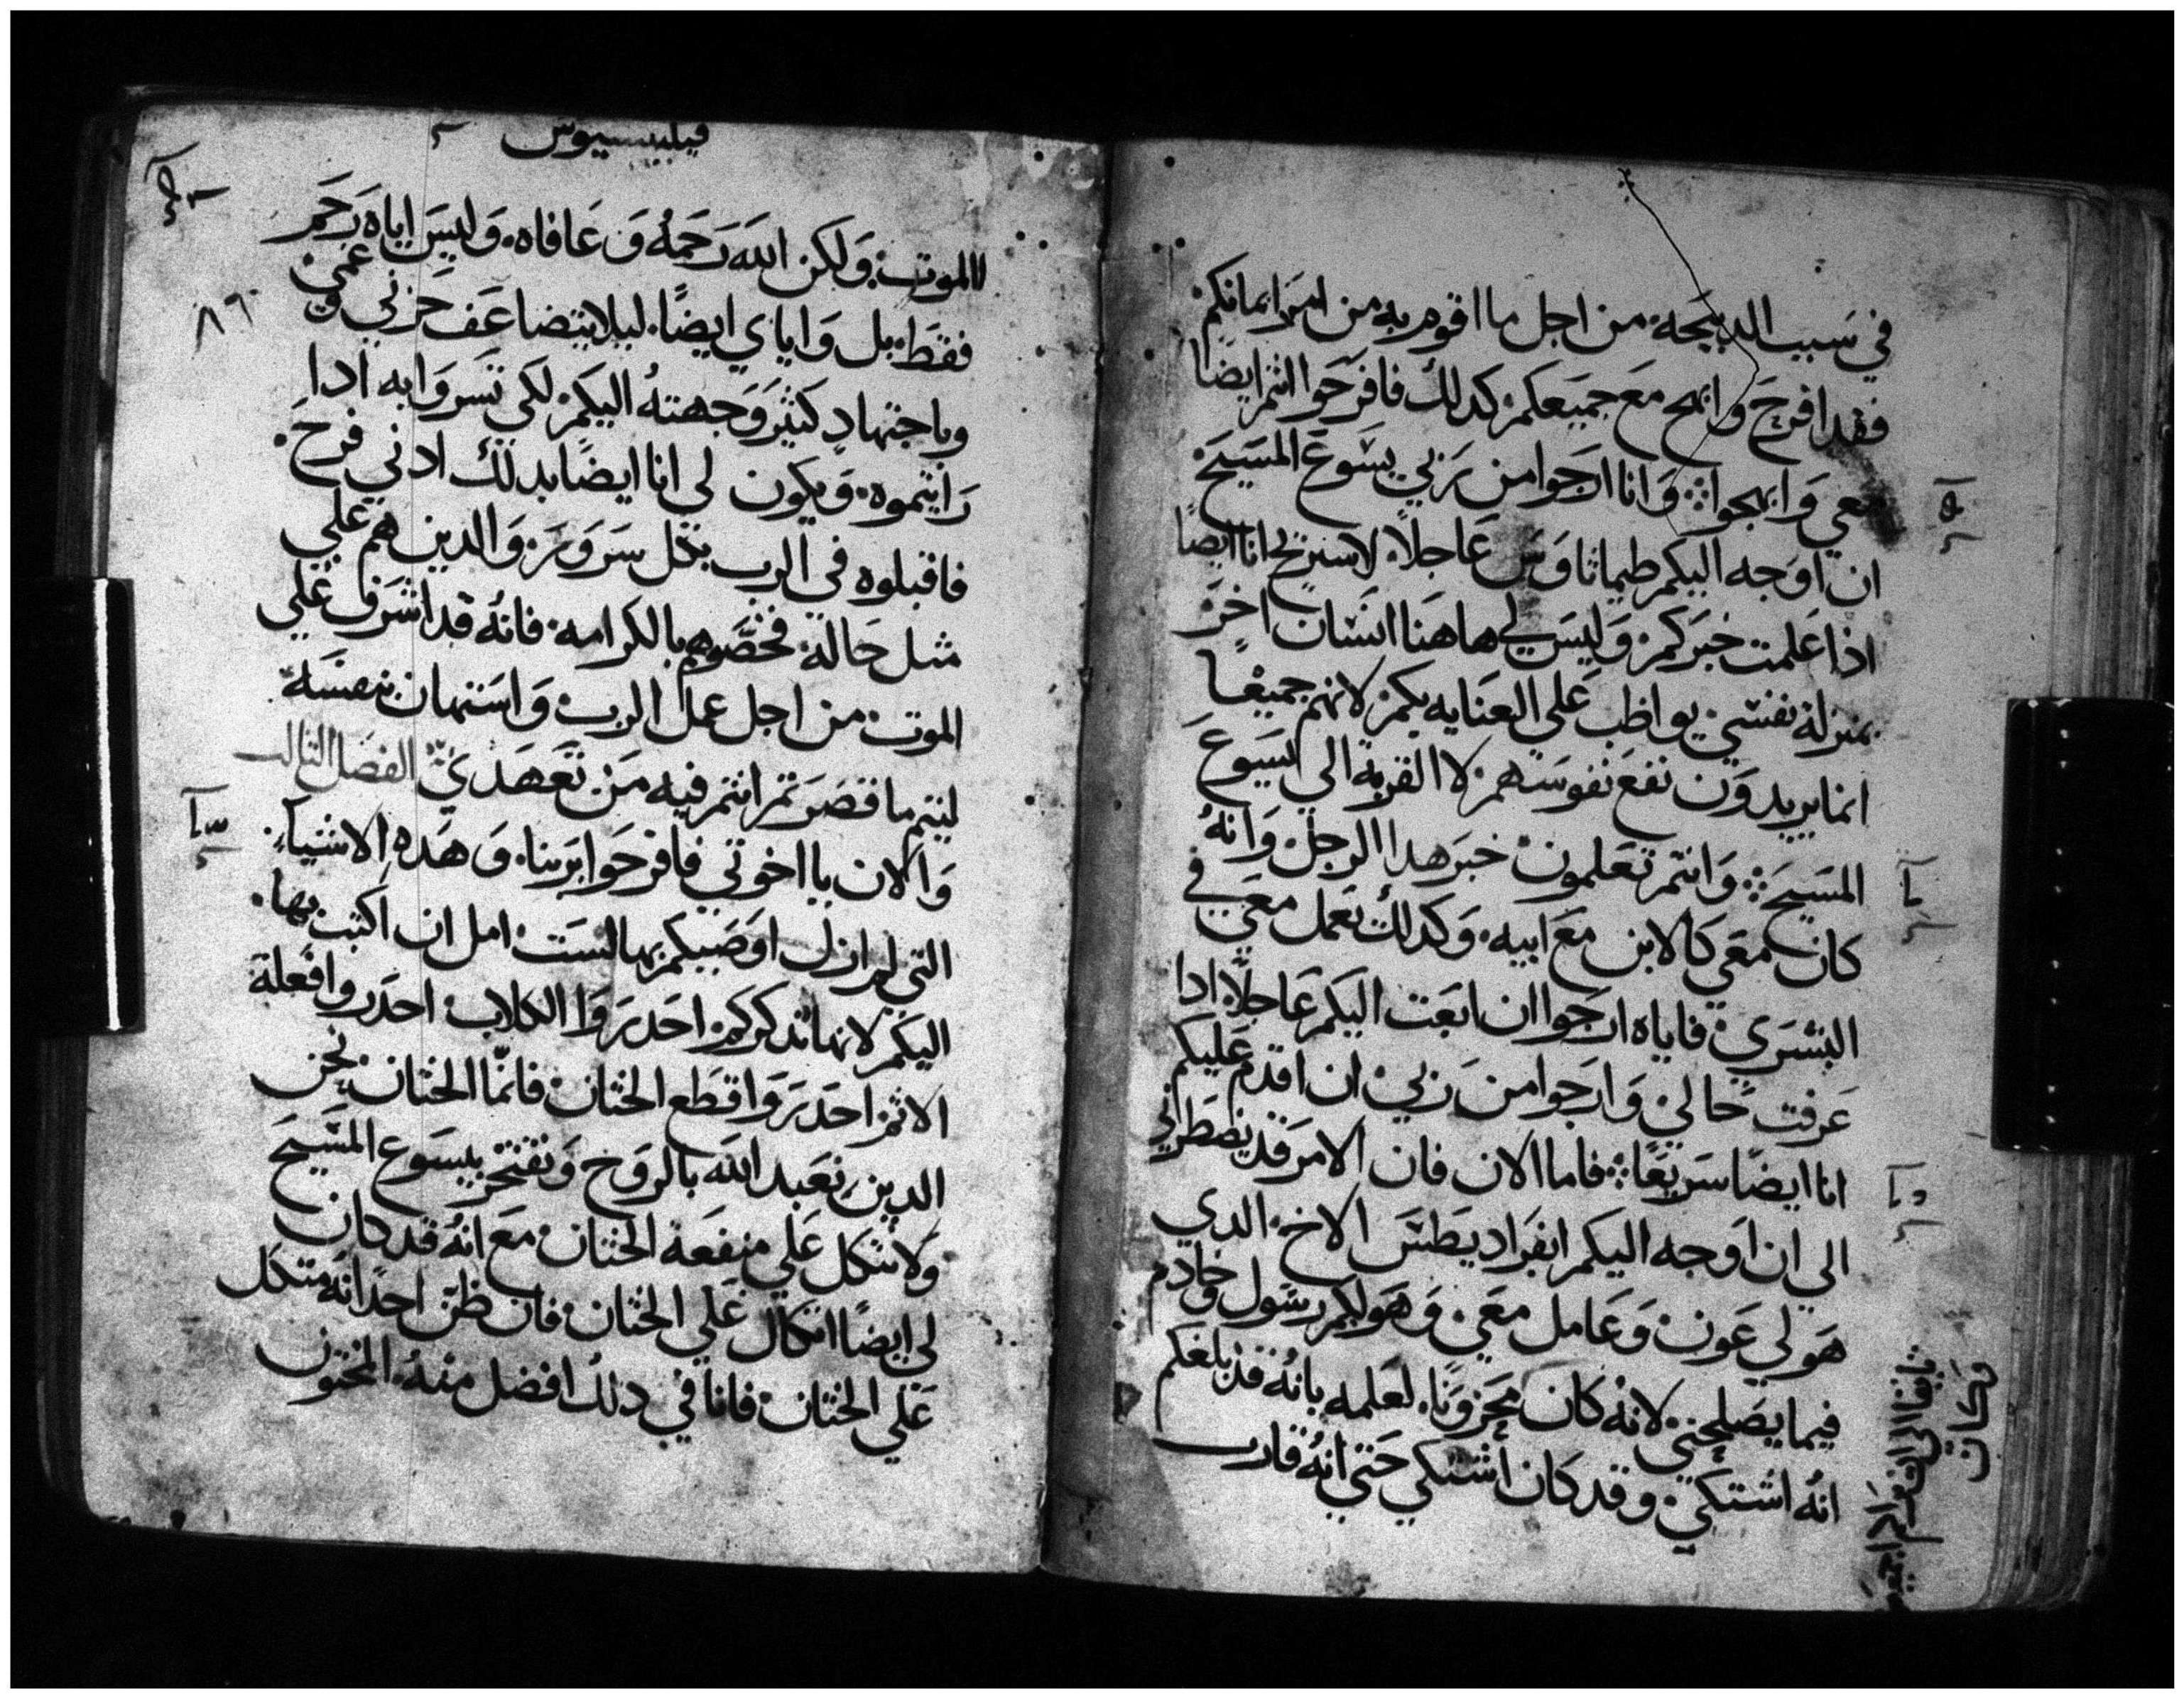 في سبب الدبيحه من اجل ما اقوم به من امر ايمانكم
فقد افرح وابهج مع جميعكم كدلك فافرحوا انتم ايضا
معي وابهجوا وانا ارجوا من ربي يسوع المسيح
ان اوجه اليكم طيماثاوس عاجلاً لاستريح انا ايضا
اذا علمت خبركم وليس لي هاهنا انسان اخر
بمنزلة نفسي يواظب علي العنايه بكم لانهم جميعاً
انما يريدون نفع نفوسهم لا القربة الي ايسوع
المسيح وانتم تعلمون خبر هدا الرجل وانهُ
كان معي كالابن مع ابيه وكدلك تعمل معي في
البشري فاياه ارجوا ان ابعت اليكم عاجلاً ادا
عرفت حالي وارجوا من ربي ان اقدم عليكم
انا ايضا سريعًا فاما الان فان الامر قد يضطرني
الي ان اوجه اليكم ابفراديطس الاخ الدي
هو لي عون وعامل معي وهو لكم رسول وخادم
فيما يصلحني لانه كان محزونًا لعلمه بانهُ قد بلغكم
انهُ اشتكي وقد كان اشتكي حتي انهُ قارب
فيلبسيوس
٨٦
الموت ولكن الله رحمهُ وعافاه وليس اياه رحم
فقط بل واياي ايضًا ليلا يتضاعف حزني وغمي
وباجتهادٍ كثير وجهتهُ اليكم لكي تسروا به ادا
رايتموه ويكون لي انا ايضا بدلك ادني فرح
فاقبلوه في الرب بكل سرور والدين هم علي
مثل حاله فخصّوهم بالكرامه فانهُ قد اشرف علي
الموت من اجل عمل الرب واستهان بنفسه
ليتم ما قصرتم انتم فيه من تعهديّ الفصل التالت
والان يا اخوتي فافرحوا بربنا وهده الاشياء
التي لم ازل اوصيكم بها لست امل ان اكتب بها
اليكم لانها تدكركم احدروا الكلاب احدروا فعلة
الاثم احدروا قطع الختان فانمّا الختان نحن
الدين نعبد الله بالروح ونفتخر بيسوع المسيح
ولا نتكل علي منفعة الختان مع انهُ قد كان
لي ايضًا اتكال علي الختان فان ظن احدًا انهُ متكل
علي الختان فانا في دلك افضل منهُ المختون